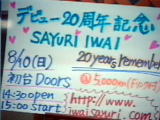 デビュー20周年記念
SAYURI IWAI
20years remember
8/10(日)
初台Doors
@5,000円(ドリンク別)
14:30 open
15:00 Start
http://www.
iwaisayuri.com/